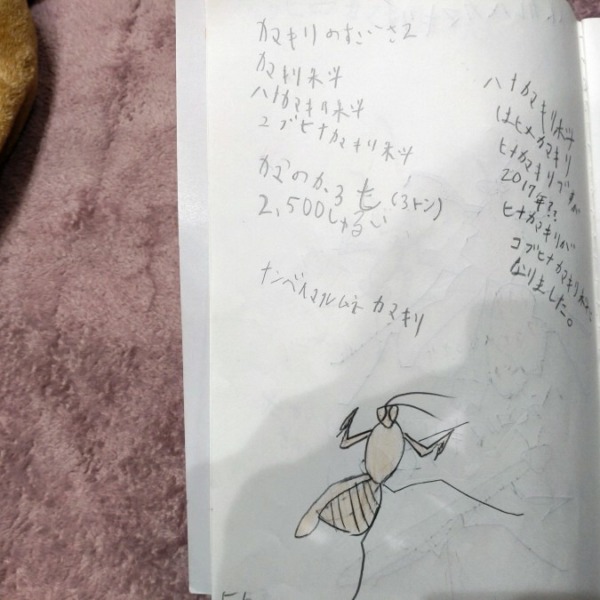 カマキリのすごーさ2
カマキリ科
ハナカマキリ科
コブヒナカマキリ科
カマのカ、3t(3トン)
2,500しゅるい
ナンベイマルムネカマキリ
ハナカマキリ科
はヒメカマキリ
ヒナカマキリ
2017年
ヒナカマキリが
コブヒナカマキリ科に
なりました。